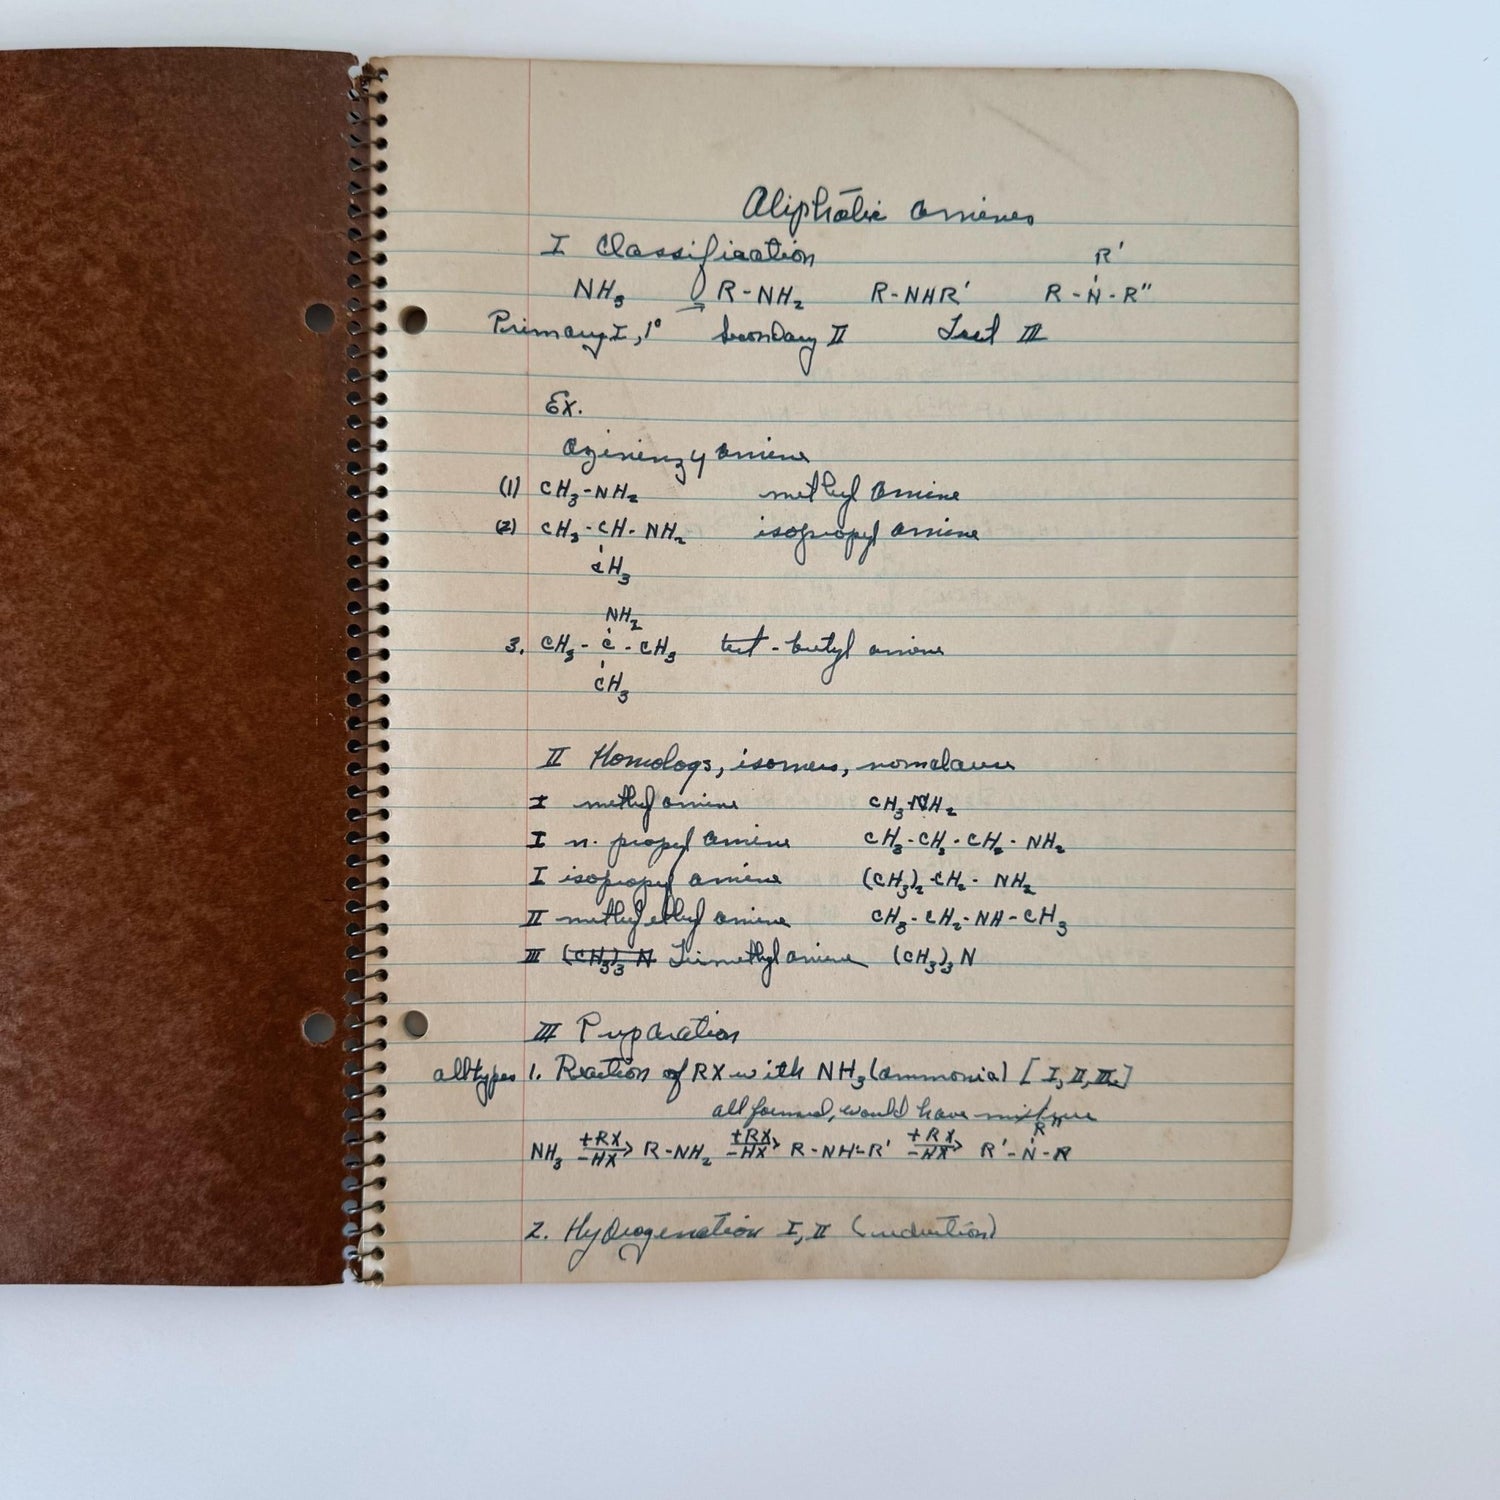 Aliphatic amines
I Classification
R'
NH₃ → R-NH₂ R-NHR' R-N-R"
Primary I, 1° Secondary II Tert III
Ex.
amine
(1) CH₃-NH₂ methyl amine
(2) CH₃-CH-NH₂ isopropyl amine
CH₃
NH₂
3. CH₃-C-CH₃ tert-butyl amine
CH₃
II Homologs, isomers,
I methyl amine CH₃NH₂
I n. propyl amine CH₃-CH₂-CH₂-NH₂
I isopropyl amine (CH₃)₂-CH₂-NH₂
II methyl ethyl amine CH₃-CH₂-NH-CH₃
III (CH₃)₃ N Trimethyl amine (CH₃)₃ N
III Preparation
all types 1. Reaction of RX with NH₃ (ammonia) [I, II, III]
all formed, would have mixture
R"
NH₃ +RX -HX> R-NH₂ +RX -HX> R-NH-R' +RX -HX> R'-N-R
2. Hydrogenation I, II (reduction)